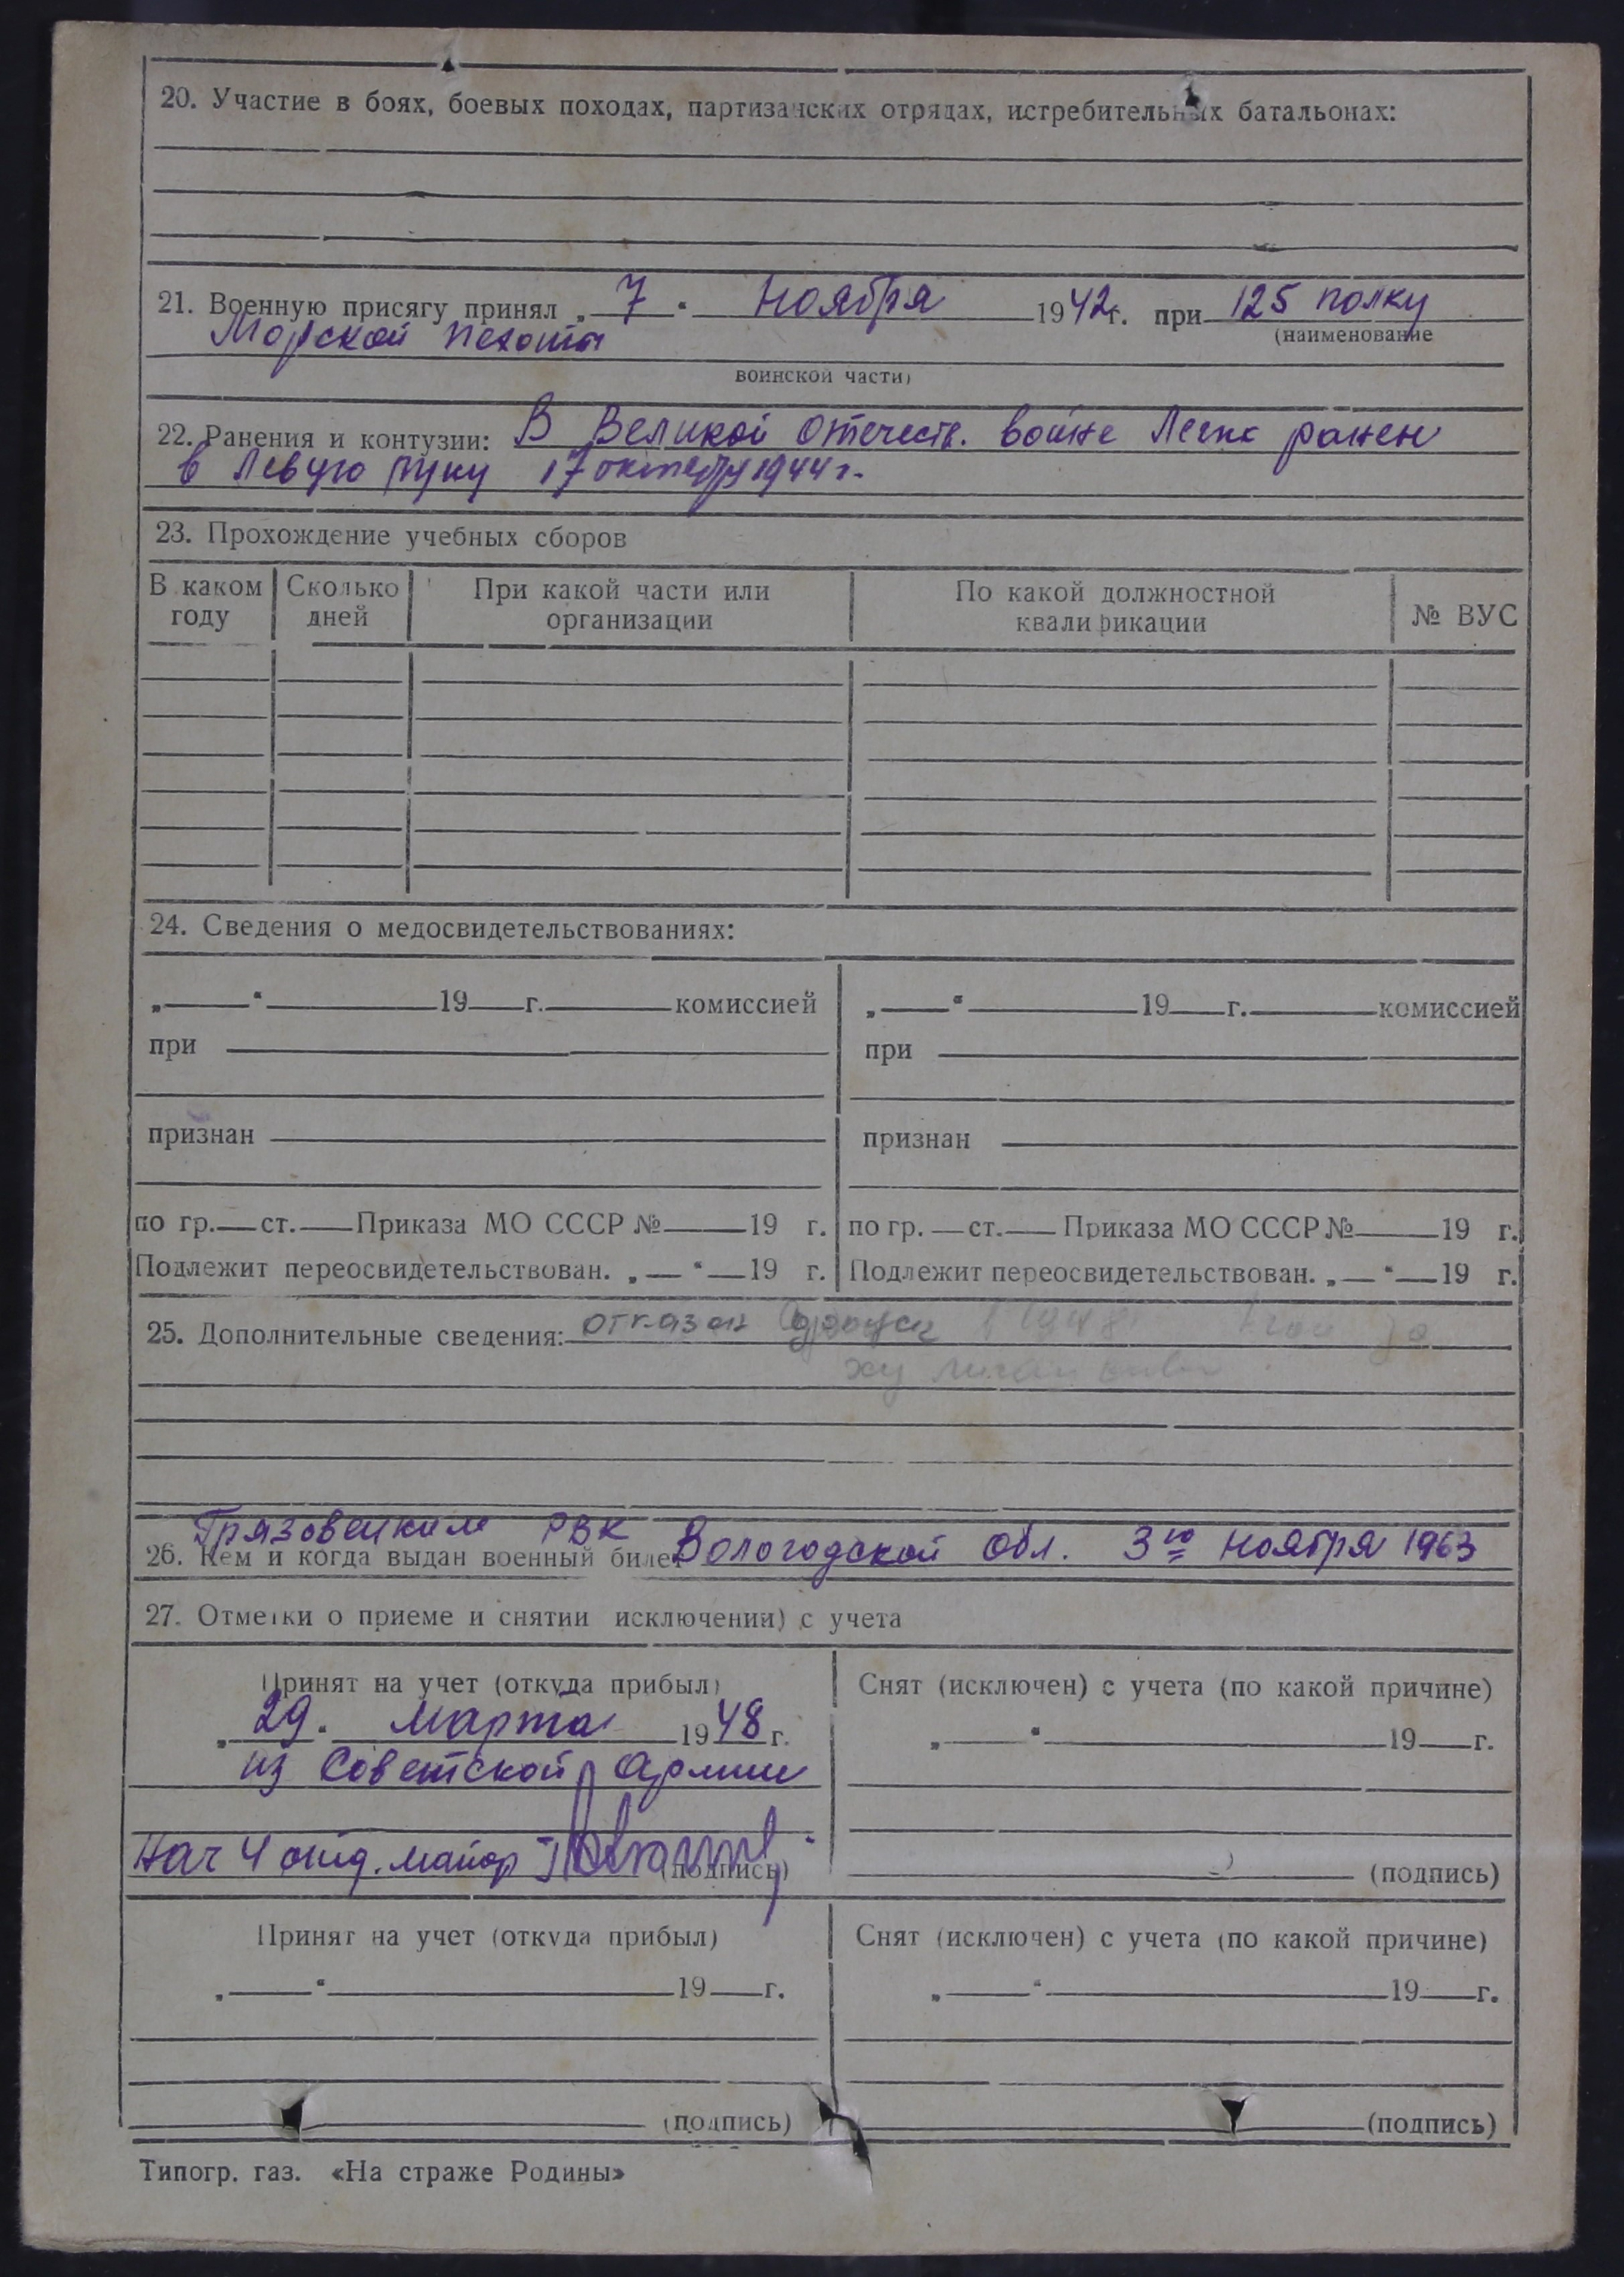 20. Участие в боях, боевых походах, партизанских отрядах, истребительных батальонах:
21. Военную присягу принял „ 7 “ Ноября 1942г. при 125 полку
(наименование
Морской пехоты
воинской части)
22. Ранения и контузии: В Великой Отечеств. войне Легко ранен
в левую руку 17 октября 1944 г.
23. Прохождение учебных сборов
В каком году Сколько дней При какой части или организации По какой должностной квалификации № ВУС
24. Сведения о медосвидетельствованиях:
„ “ 19 г. комиссией „ “ 19 г. комиссией
при при
признан признан
по гр. ст. Приказа МО СССР № 19 г. по гр. ст. Приказа МО СССР № 19 г.
Подлежит переосвидетельствован. „ “ 19 г. Подлежит переосвидетельствован. „ “ 19 г.
25. Дополнительные сведения: отказан
Грязовецким РВК
26. Кем и когда выдан военный билет Вологодской обл. 3го Ноября 1963
27. Отметки о приеме и снятии исключении) с учета
Принят на учет (откуда прибыл) Снят (исключен) с учета (по какой причине)
„ 29 “ Марта 1948 г. „ “ 19 г.
из Советской Армии
Нач 4 отд. майор (подпись) (подпись)
Принят на учет (откуда прибыл) Снят (исключен) с учета (по какой причине)
„ “ 19 г. „ “ 19 г.
(подпись) (подпись)
Типогр. газ. «На страже Родины»